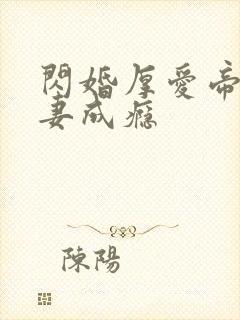 閃婚厚愛帝
妻成癮
陳陽